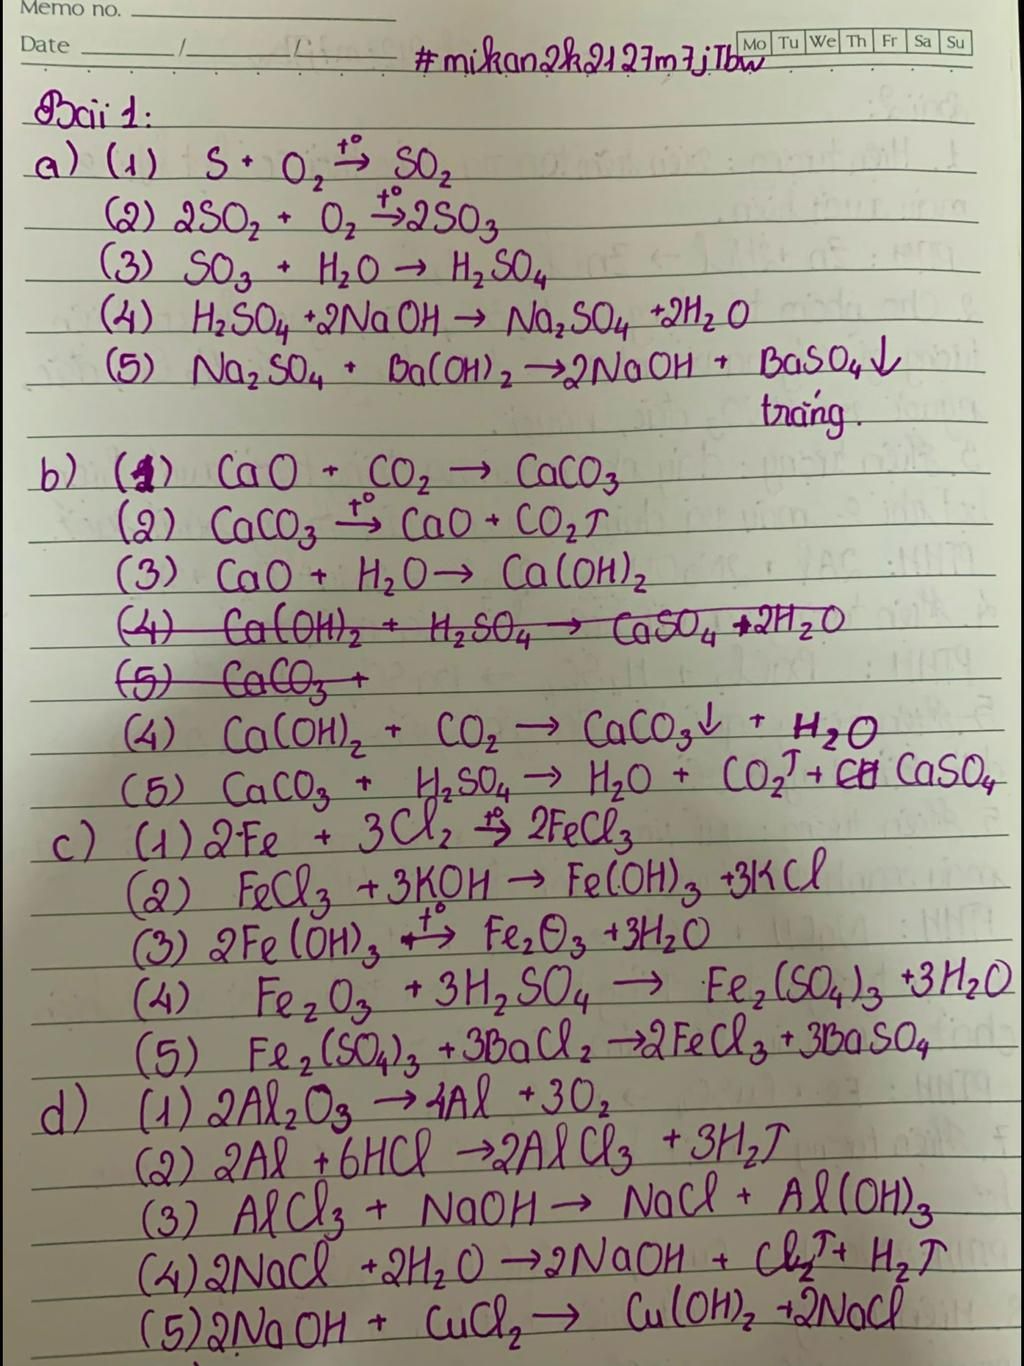 Memo no.
Date / /
Mo Tu We Th Fr Sa Su
#mikan2k2127m7jTbw
Bài 1:
a) (1) S + O₂ →t° SO₂
(2) 2SO₂ + O₂ →t° 2SO₃
(3) SO₃ + H₂O → H₂SO₄
(4) H₂SO₄ + 2NaOH → Na₂SO₄ + 2H₂O
(5) Na₂SO₄ + Ba(OH)₂ → 2NaOH + BaSO₄↓
trắng.
b) (1) CaO + CO₂ → CaCO₃
(2) CaCO₃ →t° CaO + CO₂↑
(3) CaO + H₂O → Ca(OH)₂
(4) Ca(OH)₂ + H₂SO₄ → CaSO₄ + 2H₂O
(5) CaCO₃ +
(4) Ca(OH)₂ + CO₂ → CaCO₃↓ + H₂O
(5) CaCO₃ + H₂SO₄ → H₂O + CO₂↑ + CaSO₄
c) (1) 2Fe + 3Cl₂ →t° 2FeCl₃
(2) FeCl₃ + 3KOH → Fe(OH)₃ + 3KCl
(3) 2Fe(OH)₃ →t° Fe₂O₃ + 3H₂O
(4) Fe₂O₃ + 3H₂SO₄ → Fe₂(SO₄)₃ + 3H₂O
(5) Fe₂(SO₄)₃ + 3BaCl₂ → 2FeCl₃ + 3BaSO₄
d) (1) 2Al₂O₃ → 4Al + 3O₂
(2) 2Al + 6HCl → 2AlCl₃ + 3H₂↑
(3) AlCl₃ + NaOH → NaCl + Al(OH)₃
(4) 2NaCl + 2H₂O → 2NaOH + Cl₂↑ + H₂↑
(5) 2NaOH + CuCl₂ → Cu(OH)₂ + 2NaCl